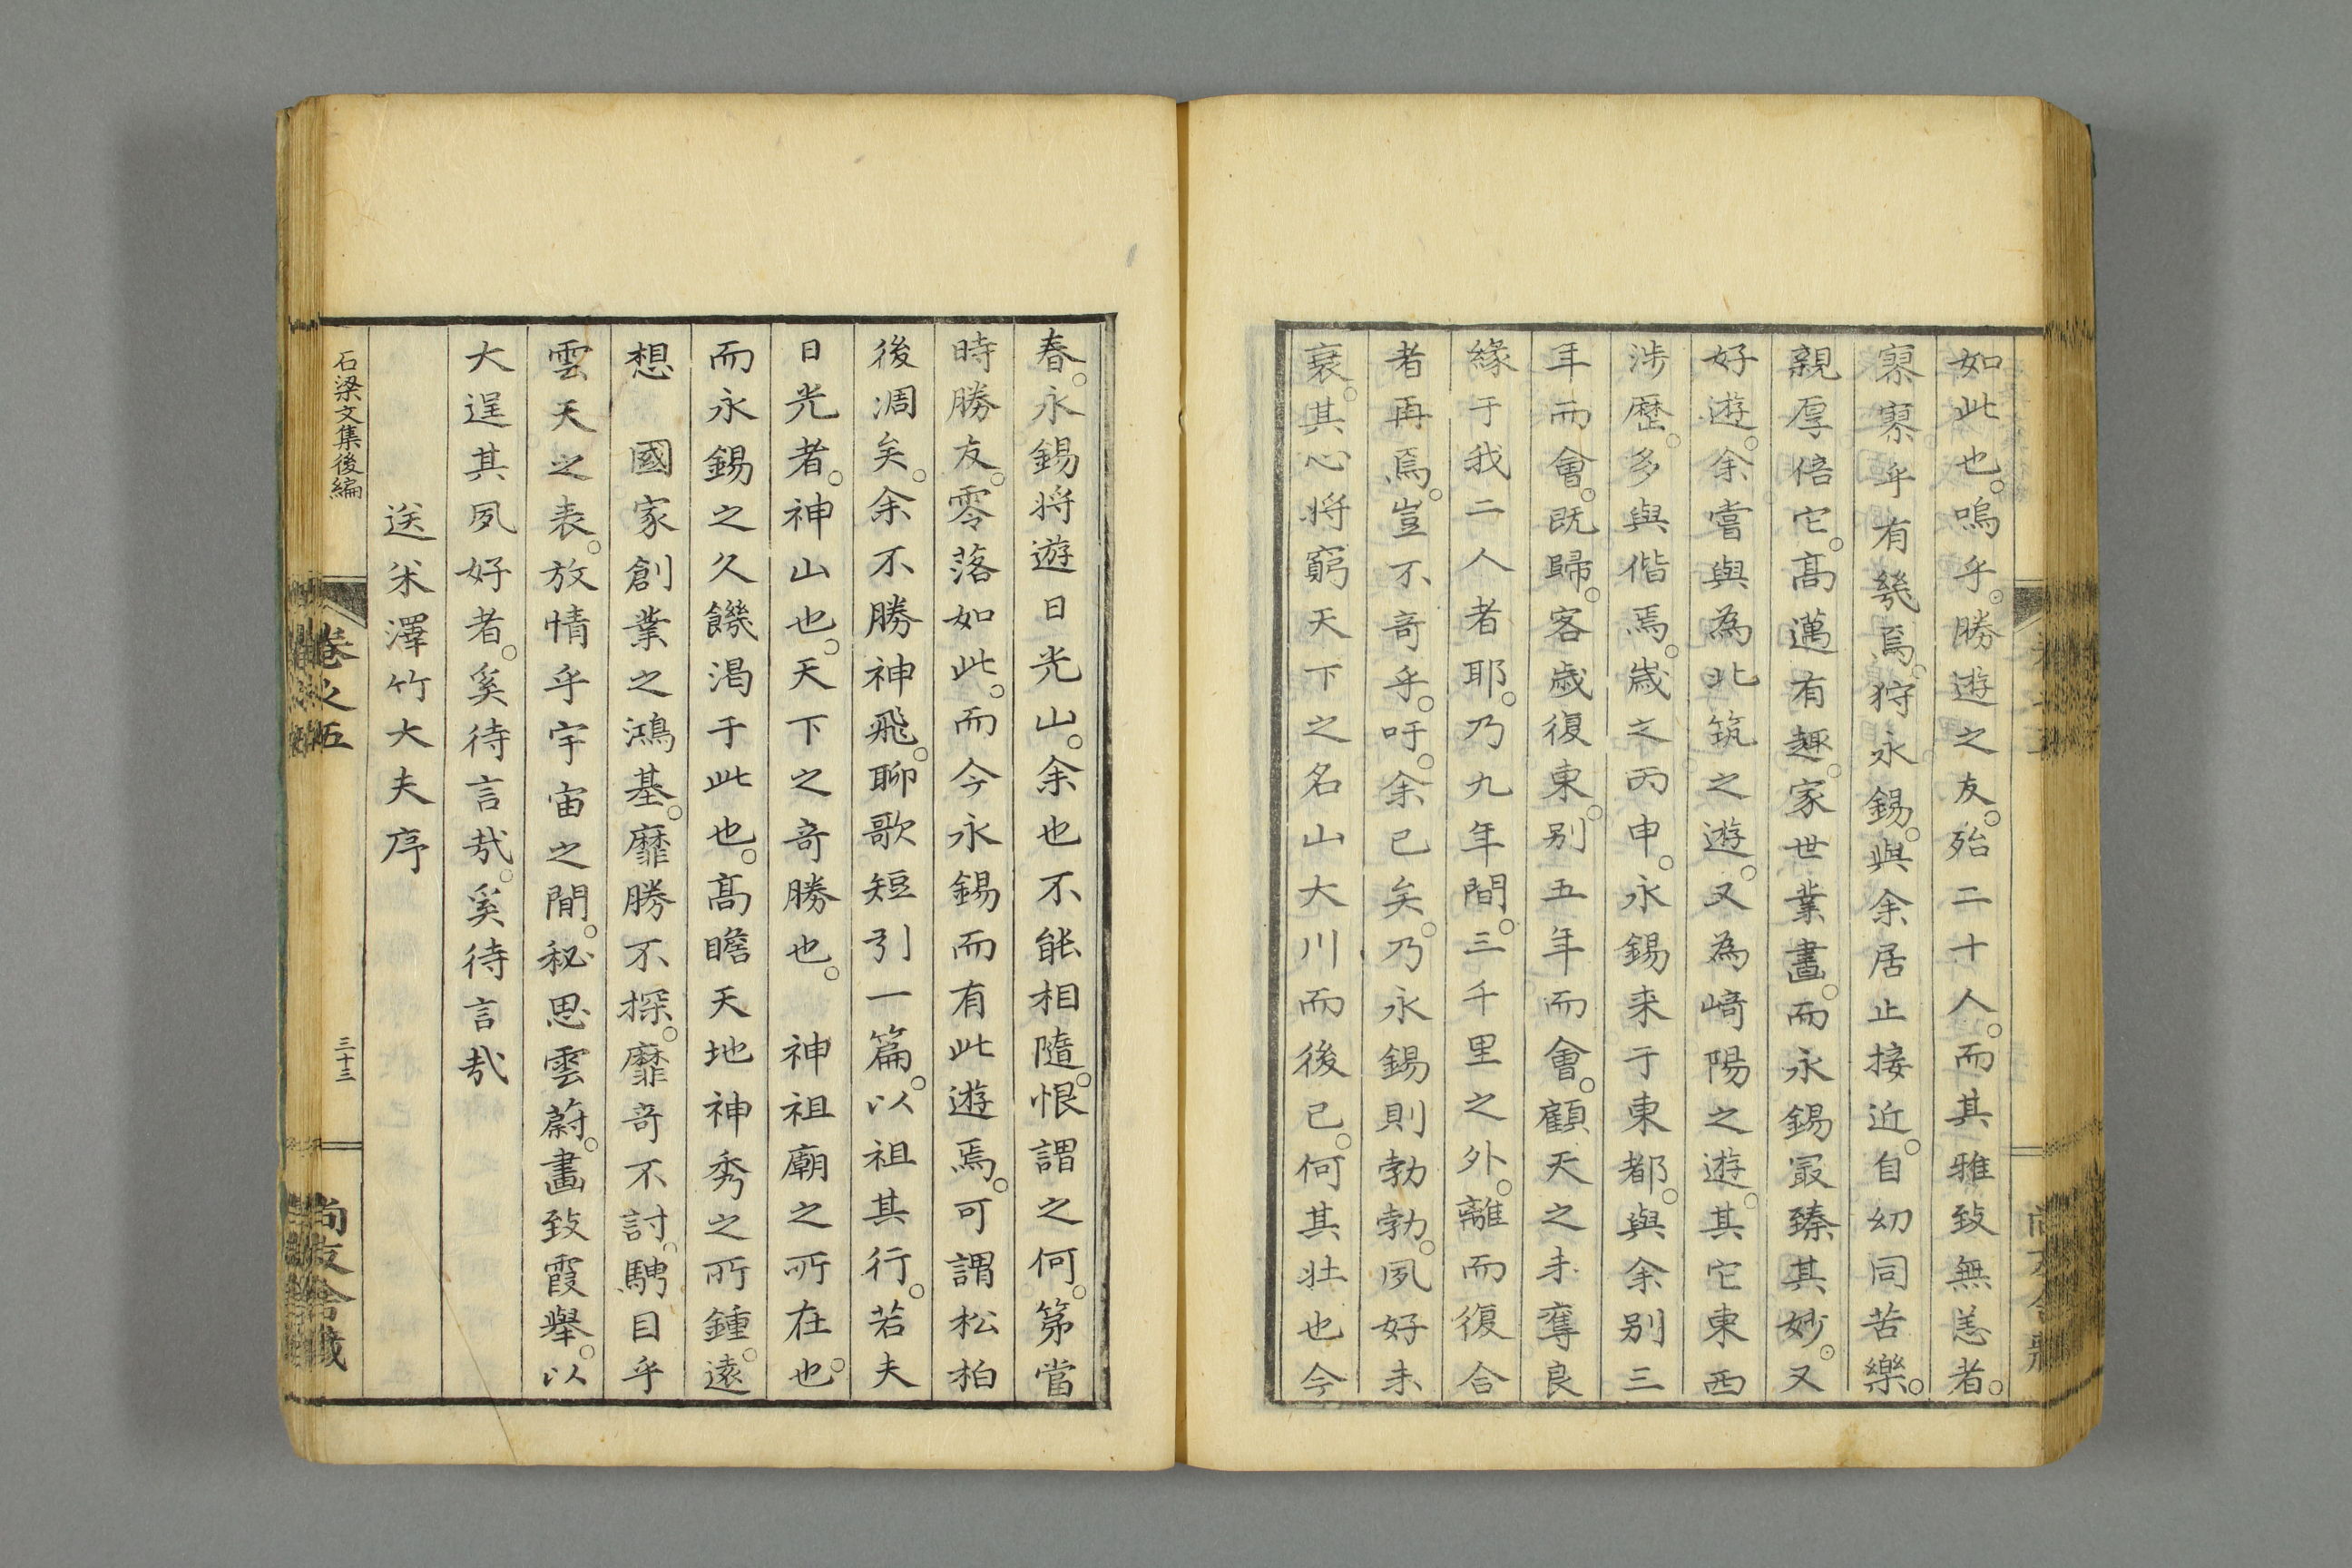 如此也。嗚乎。勝遊之友。殆二十人。而其雅致無恙者。
寥寥乎有幾焉。狩永錫。與余居止接近。自幼同苦樂。
親厚倍它。高邁有趣。家世業畫。而永錫冣臻其妙。又
好遊。余嘗與為北筑之遊。又為﨑陽之遊。其它東西
涉歷。多與偕焉。歲之丙申。永錫来于東都。與余別三
年而會。既歸。客歲復東。別五年而會。顧天之未奪良
緣于我二人者耶。乃九年間。三千里之外。離而復合
者再焉。豈不奇乎。吁。余已矣。乃永錫則勃勃。夙好未
衰。其心将窮天下之名山大川而後已。何其壯也今
春。永錫将遊日光山。余也不能相隨。恨謂之何。第當
時勝友。零落如此。而今永錫而有此遊焉。可謂松柏
後凋矣。余不勝神飛。聊歌短引一篇。以祖其行。若夫
日光者。神山也。天下之奇勝也。 神祖廟之所在也。
而永錫之久饑渴于此也。高瞻天地神秀之所鍾。遠
想 國家創業之鴻基。靡勝不探。靡奇不討。騁目乎
雲天之表。放情乎宇宙之間。秘思雲蔚。畫致霞舉。以
大逞其夙好者。奚待言哉。奚待言哉
送米澤竹大夫序
石梁文集後編
卷之五
三十三
尚友舎藏